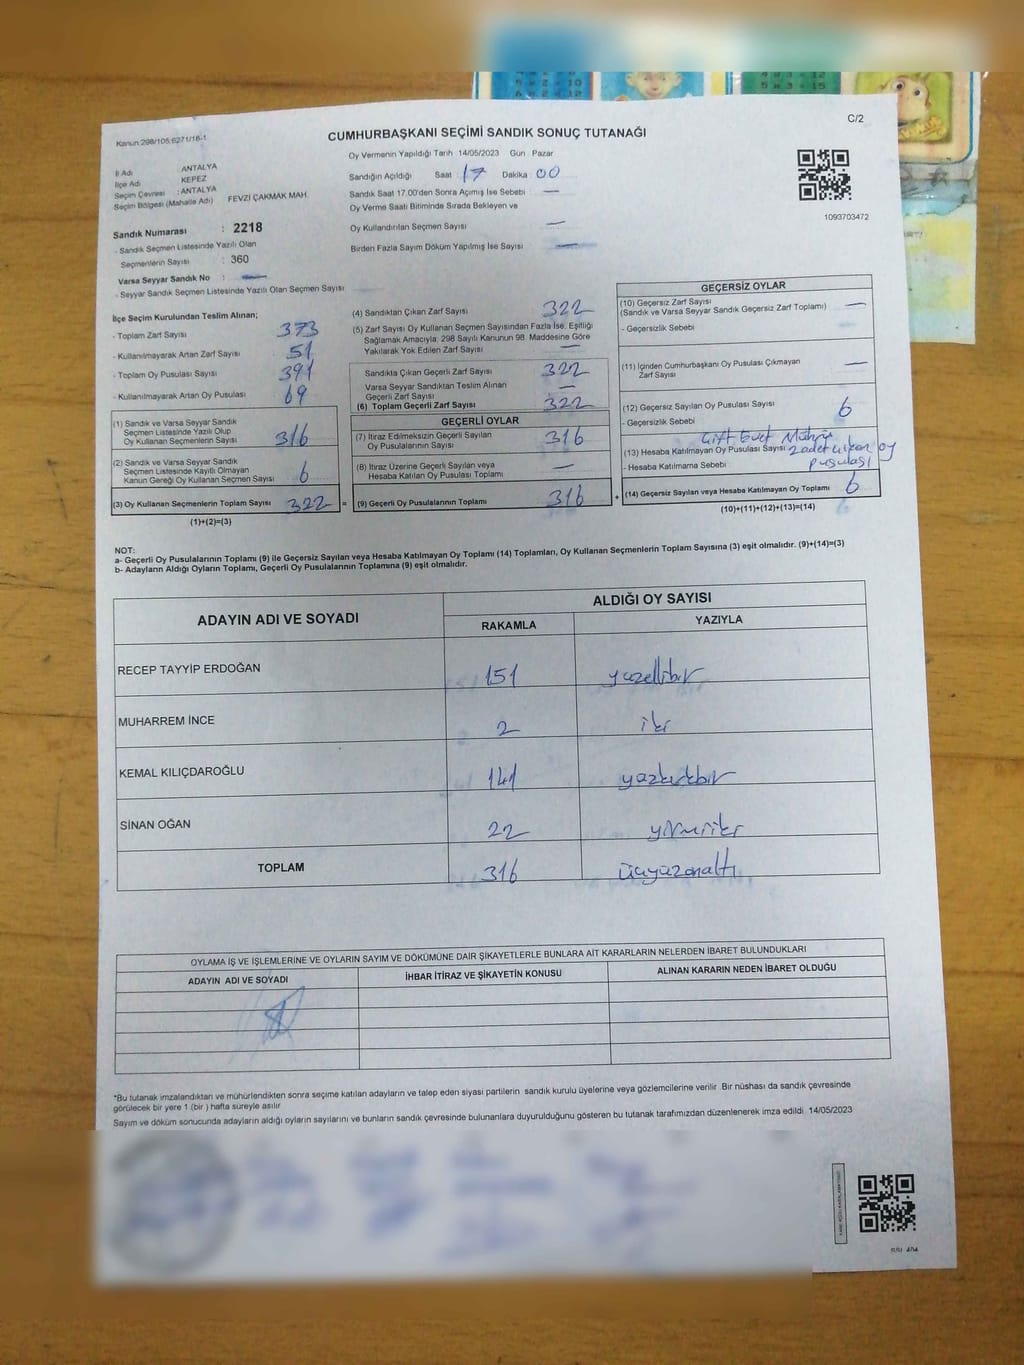 C/2
Kanun:298/105,6271/18-1
CUMHURBAŞKANI SEÇİMİ SANDIK SONUÇ TUTANAĞI
İl Adı : ANTALYA
İlçe Adı : KEPEZ
Seçim Çevresi : ANTALYA
Seçim Bölgesi (Mahalle Adı) FEVZİ ÇAKMAK MAH.
Sandık Numarası : 2218
- Sandık Seçmen Listesinde Yazılı Olan
Seçmenlerin Sayısı : 360
Varsa Seyyar Sandık No : —
- Seyyar Sandık Seçmen Listesinde Yazılı Olan Seçmen Sayısı
Oy Vermenin Yapıldığı Tarih 14/05/2023 Gün Pazar
Sandığın Açıldığı Saat 17 Dakika 00
Sandık Saat 17.00'den Sonra Açımış İse Sebebi —
Oy Verme Saati Bitiminde Sırada Bekleyen ve
Oy Kullandırılan Seçmen Sayısı —
Birden Fazla Sayım Döküm Yapılmış İse Sayısı —
1093703472
İlçe Seçim Kurulundan Teslim Alınan;
- Toplam Zarf Sayısı 373
- Kullanılmayarak Artan Zarf Sayısı 51
- Toplam Oy Pusulası Sayısı 391
- Kullanılmayarak Artan Oy Pusulası 69
(1) Sandık ve Varsa Seyyar Sandık
Seçmen Listesinde Yazılı Olup
Oy Kullanan Seçmenlerin Sayısı 316
(2) Sandık ve Varsa Seyyar Sandık
Seçmen Listesinde Kayıtlı Olmayan
Kanun Gereği Oy Kullanan Seçmen Sayısı 6
(3) Oy Kullanan Seçmenlerin Toplam Sayısı 322 =
(1)+(2)=(3)
(4) Sandıktan Çıkan Zarf Sayısı 322
(5) Zarf Sayısı Oy Kullanan Seçmen Sayısından Fazla İse, Eşitliği
Sağlamak Amacıyla, 298 Sayılı Kanunun 98. Maddesine Göre
Yakılarak Yok Edilen Zarf Sayısı —
Sandıkta Çıkan Geçerli Zarf Sayısı 322
Varsa Seyyar Sandıktan Teslim Alınan
Geçerli Zarf Sayısı —
(6) Toplam Geçerli Zarf Sayısı 322
GEÇERLİ OYLAR
(7) İtiraz Edilmeksizin Geçerli Sayılan
Oy Pusulasının Sayısı 316
(8) İtiraz Üzerine Geçerli Sayılan veya
Hesaba Katılan Oy Pusulası Toplamı —
(9) Geçerli Oy Pusulalarının Toplamı 316 +
GEÇERSİZ OYLAR
(10) Geçersiz Zarf Sayısı
(Sandık ve Varsa Seyyar Sandık Geçersiz Zarf Toplamı) —
- Geçersizlik Sebebi
(11) İçinden Cumhurbaşkanı Oy Pusulası Çıkmayan
Zarf Sayısı —
(12) Geçersiz Sayılan Oy Pusulası Sayısı 6
- Geçersizlik Sebebi Çift Evet Mührü
(13) Hesaba Katılmayan Oy Pusulası Sayısı 2 adet çıkan oy
- Hesaba Katılmama Sebebi pusulası
(14) Geçersiz Sayılan veya Hesaba Katılmayan Oy Toplamı 6
(10)+(11)+(12)+(13)=(14)
NOT:
a- Geçerli Oy Pusulalarının Toplamı (9) ile Geçersiz Sayılan veya Hesaba Katılmayan Oy Toplamı (14) Toplamları, Oy Kullanan Seçmenlerin Toplam Sayısına (3) eşit olmalıdır. (9)+(14)=(3)
b- Adayların Aldığı Oyların Toplamı, Geçerli Oy Pusulalarının Toplamına (9) eşit olmalıdır.
ADAYIN ADI VE SOYADI ALDIĞI OY SAYISI
RAKAMLA YAZIYLA
RECEP TAYYİP ERDOĞAN 151 yüzellibir
MUHARREM İNCE 2 iki
KEMAL KILIÇDAROĞLU 141 yüzkırkbir
SİNAN OĞAN 22 yirmiiki
TOPLAM 316 üçyüzonaltı
OYLAMA İŞ VE İŞLEMLERİNE VE OYLARIN SAYIM VE DÖKÜMÜNE DAİR ŞİKAYETLERLE BUNLARA AİT KARARLARIN NELERDEN İBARET BULUNDUKLARI
ADAYIN ADI VE SOYADI İHBAR İTİRAZ VE ŞİKAYETİN KONUSU ALINAN KARARIN NEDEN İBARET OLDUĞU
*Bu tutanak imzalandıktan ve mühürlendikten sonra seçime katılan adayların ve talep eden siyasi partilerin sandık kurulu üyelerine veya gözlemcilerine verilir. Bir nüshası da sandık çevresinde
görülecek bir yere 1 (bir) hafta süreyle asılır
Sayım ve döküm sonucunda adayların aldığı oyların sayılarını ve bunların sandık çevresinde bulunanlara duyurulduğunu gösteren bu tutanak tarafımızdan düzenlenerek imza edildi. 14/05/2023